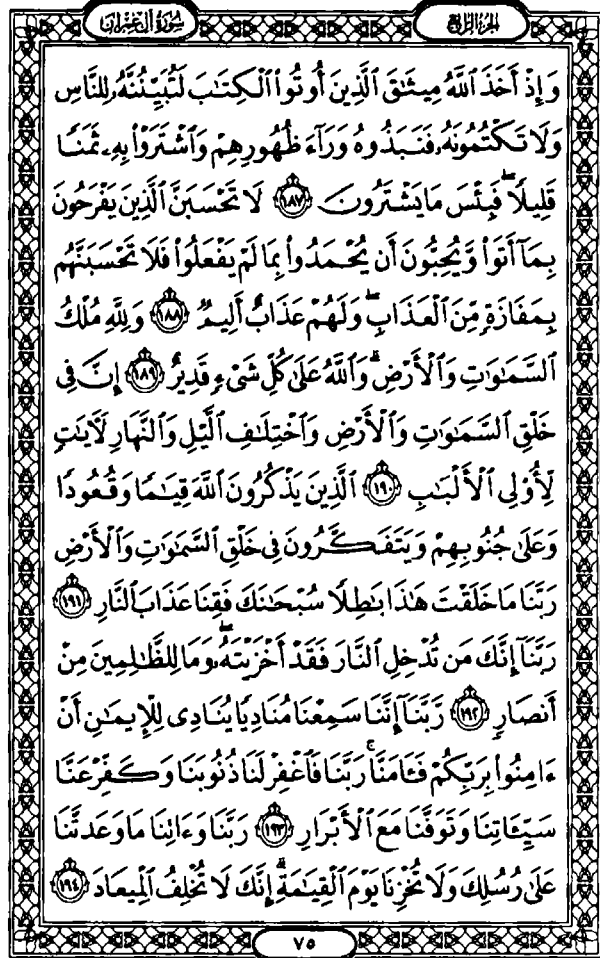 سورة آل عمران
الجزء الرابع
وَإِذْ أَخَذَ ٱللَّهُ مِيثَٰقَ ٱلَّذِينَ أُوتُوا۟ ٱلْكِتَٰبَ لَتُبَيِّنُنَّهُۥ لِلنَّاسِ
وَلَا تَكْتُمُونَهُۥ فَنَبَذُوهُ وَرَآءَ ظُهُورِهِمْ وَٱشْتَرَوْا۟ بِهِۦ ثَمَنًا
قَلِيلًا ۖ فَبِئْسَ مَا يَشْتَرُونَ ١٨٧ لَا تَحْسَبَنَّ ٱلَّذِينَ يَفْرَحُونَ
بِمَآ أَتَوا۟ وَّيُحِبُّونَ أَن يُحْمَدُوا۟ بِمَا لَمْ يَفْعَلُوا۟ فَلَا تَحْسَبَنَّهُم
بِمَفَازَةٍ مِّنَ ٱلْعَذَابِ ۖ وَلَهُمْ عَذَابٌ أَلِيمٌ ١٨٨ وَلِلَّهِ مُلْكُ
ٱلسَّمَٰوَٰتِ وَٱلْأَرْضِ ۗ وَٱللَّهُ عَلَىٰ كُلِّ شَىْءٍ قَدِيرٌ ١٨٩ إِنَّ فِى
خَلْقِ ٱلسَّمَٰوَٰتِ وَٱلْأَرْضِ وَٱخْتِلَٰفِ ٱلَّيْلِ وَٱلنَّهَارِ لَءَايَٰتٍ
لِّأُو۟لِى ٱلْأَلْبَٰبِ ١٩٠ ٱلَّذِينَ يَذْكُرُونَ ٱللَّهَ قِيَٰمًا وَقُعُودًا
وَعَلَىٰ جُنُوبِهِمْ وَيَتَفَكَّرُونَ فِى خَلْقِ ٱلسَّمَٰوَٰتِ وَٱلْأَرْضِ
رَبَّنَا مَا خَلَقْتَ هَٰذَا بَٰطِلًا سُبْحَٰنَكَ فَقِنَا عَذَابَ ٱلنَّارِ ١٩١
رَبَّنَآ إِنَّكَ مَن تُدْخِلِ ٱلنَّارَ فَقَدْ أَخْزَيْتَهُۥ ۖ وَمَا لِلظَّٰلِمِينَ مِنْ
أَنصَارٍ ١٩٢ رَّبَّنَآ إِنَّنَا سَمِعْنَا مُنَادِيًا يُنَادِى لِلْإِيمَٰنِ أَنْ
ءَامِنُوا۟ بِرَبِّكُمْ فَـَٔامَنَّا ۚ رَبَّنَا فَٱغْفِرْ لَنَا ذُنُوبَنَا وَكَفِّرْ عَنَّا
سَيِّـَٔاتِنَا وَتَوَفَّنَا مَعَ ٱلْأَبْرَارِ ١٩٣ رَبَّنَا وَءَاتِنَا مَا وَعَدتَّنَا
عَلَىٰ رُسُلِكَ وَلَا تُخْزِنَا يَوْمَ ٱلْقِيَٰمَةِ ۗ إِنَّكَ لَا تُخْلِفُ ٱلْمِيعَادَ ١٩٤
٧٥